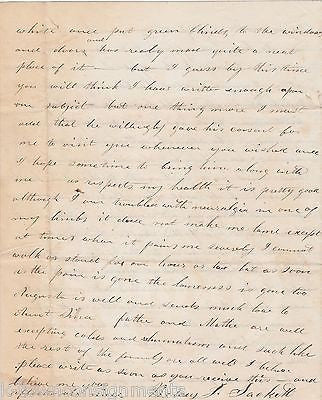 white and put green blinds to the windows
and
and doors has realy mad quite a neat
place of it — but I guess by this time
you will think I have written enough upon
one subject but one thing more I must
add that he willingly gave his consent for
me to visit you whenever you wished and
I hope sometime to bring him along with
me — as respects my health it is pretty good
although I am troubled with neuralgia in one of
my limbs it does not make me lame except
at times when it pains me severely I cannot
walk or stand for an hour or so but as soon
as the pain is gone the lameness is gone too
Augusta is well and sends much love to
Aunt father and Mother are well
excepting colds and rheumatism and such like
the rest of the family are all well I believe
please write as soon as you receive this — and
believe me yours J. Sackett